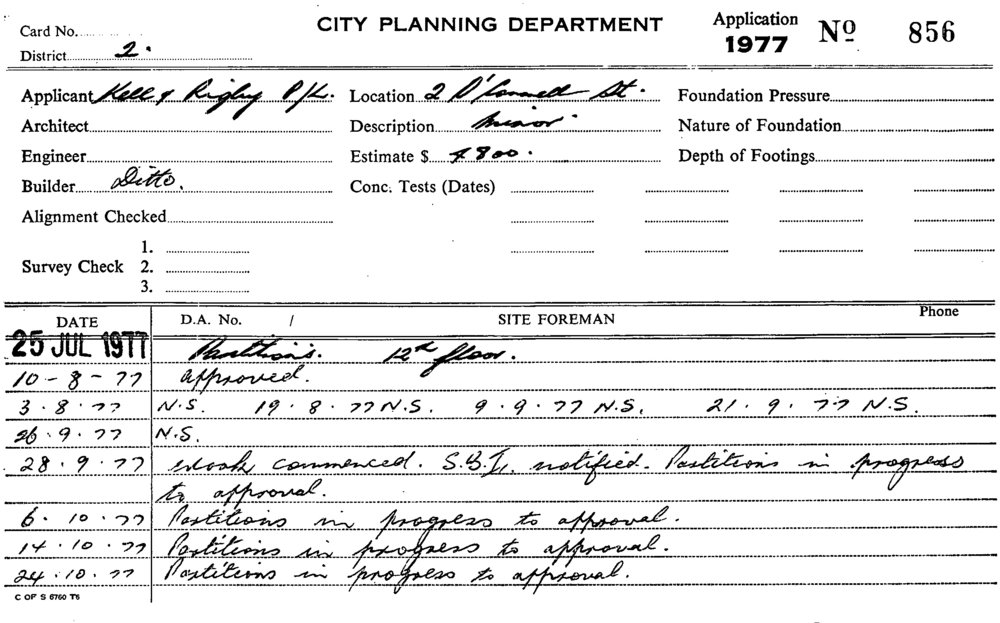 CITY PLANNING DEPARTMENT
Application
1977 No 856
Card No.
District 2.
Applicant Kell & Rigby P/L. Location 2 O'Connell St. Foundation Pressure
Architect Description Minor. Nature of Foundation
Engineer Estimate $ 4800. Depth of Footings
Builder Ditto. Conc. Tests (Dates)
Alignment Checked
1.
Survey Check 2.
3.
DATE D.A. No. / SITE FOREMAN Phone
25 JUL 1977 Partitions. 12th floor.
10-8-77 approved.
3.8.77 N.S. 19.8.77 N.S. 9.9.77 N.S. 21.9.77 N.S.
26.9.77 N.S.
28.9.77 Work commenced. S.B.I. notified. Partitions in progress
to approval.
6.10.77 Partitions in progress to approval.
14.10.77 Partitions in progress to approval.
24.10.77 Partitions in progress to approval.
C OF S 6760 T6